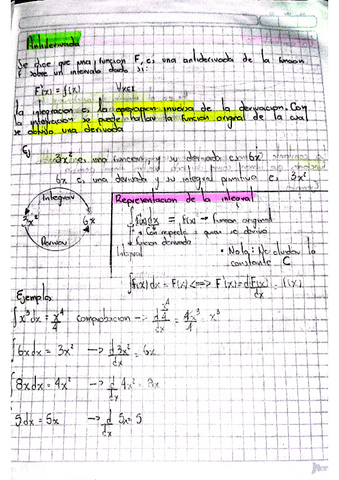 Antiderivada
Se dice que una funcion F, es una antiderivada de la funcion
f sobre un intervalo dado si:
F'(x) = f(x) ∀x∈I
La integracion es la operacion inversa de la derivacion. Con
la integracion se puede hallar la funcion original de la cual
se obtuvo una derivada
Ej
3x² es una funcion, y su derivada es 6x
6x es una derivada y su integral primitiva es 3x²
Integrar
3x² 6x
Derivar
Representacion de la integral
∫f(x)dx = F(x) → Funcion original
Con respecto a quien se derivo
funcion derivada
Integral
• Nota: No olvidar la
constante C
∫f(x)dx = F(x) <=> F'(x) = dF(x)/dx = f(x)
Ejemplo:
∫x³dx = x⁴/4 Comprobacion → d x⁴/4 /dx = 4x³/4 = x³
∫6xdx = 3x² → d 3x²/dx = 6x
∫8xdx = 4x² → d/dx 4x² = 8x
∫5dx = 5x → d/dx 5x = 5